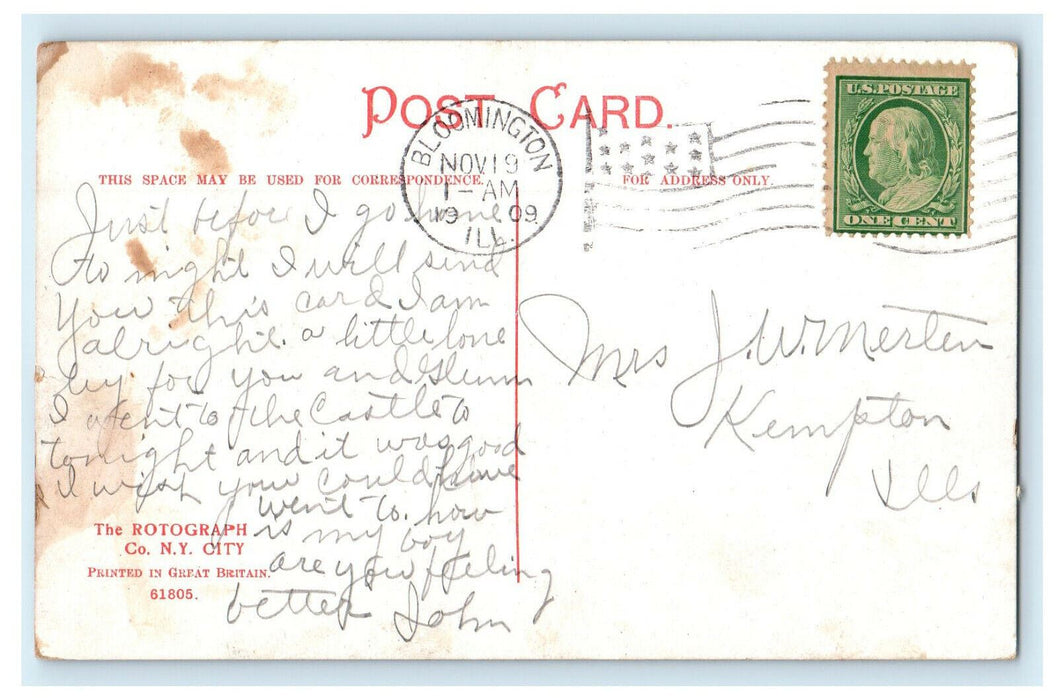 POST CARD.
BLOOMINGTON
NOV 19
1- AM
1909
ILL.
U.S. POSTAGE
ONE CENT
THIS SPACE MAY BE USED FOR CORRESPONDENCE.
FOR ADDRESS ONLY.
Just before I go home
to night I will send
you this card I am
alright. a little lone
ly for you and Glenn
I went to the Castle to
tonight and it was good
I wish you could have
went to. how
is my boy
are you feeling
better John
Mrs J. W. Merten
Kempton
Ills
The ROTOGRAPH
Co. N.Y. CITY
PRINTED IN GREAT BRITAIN.
61805.